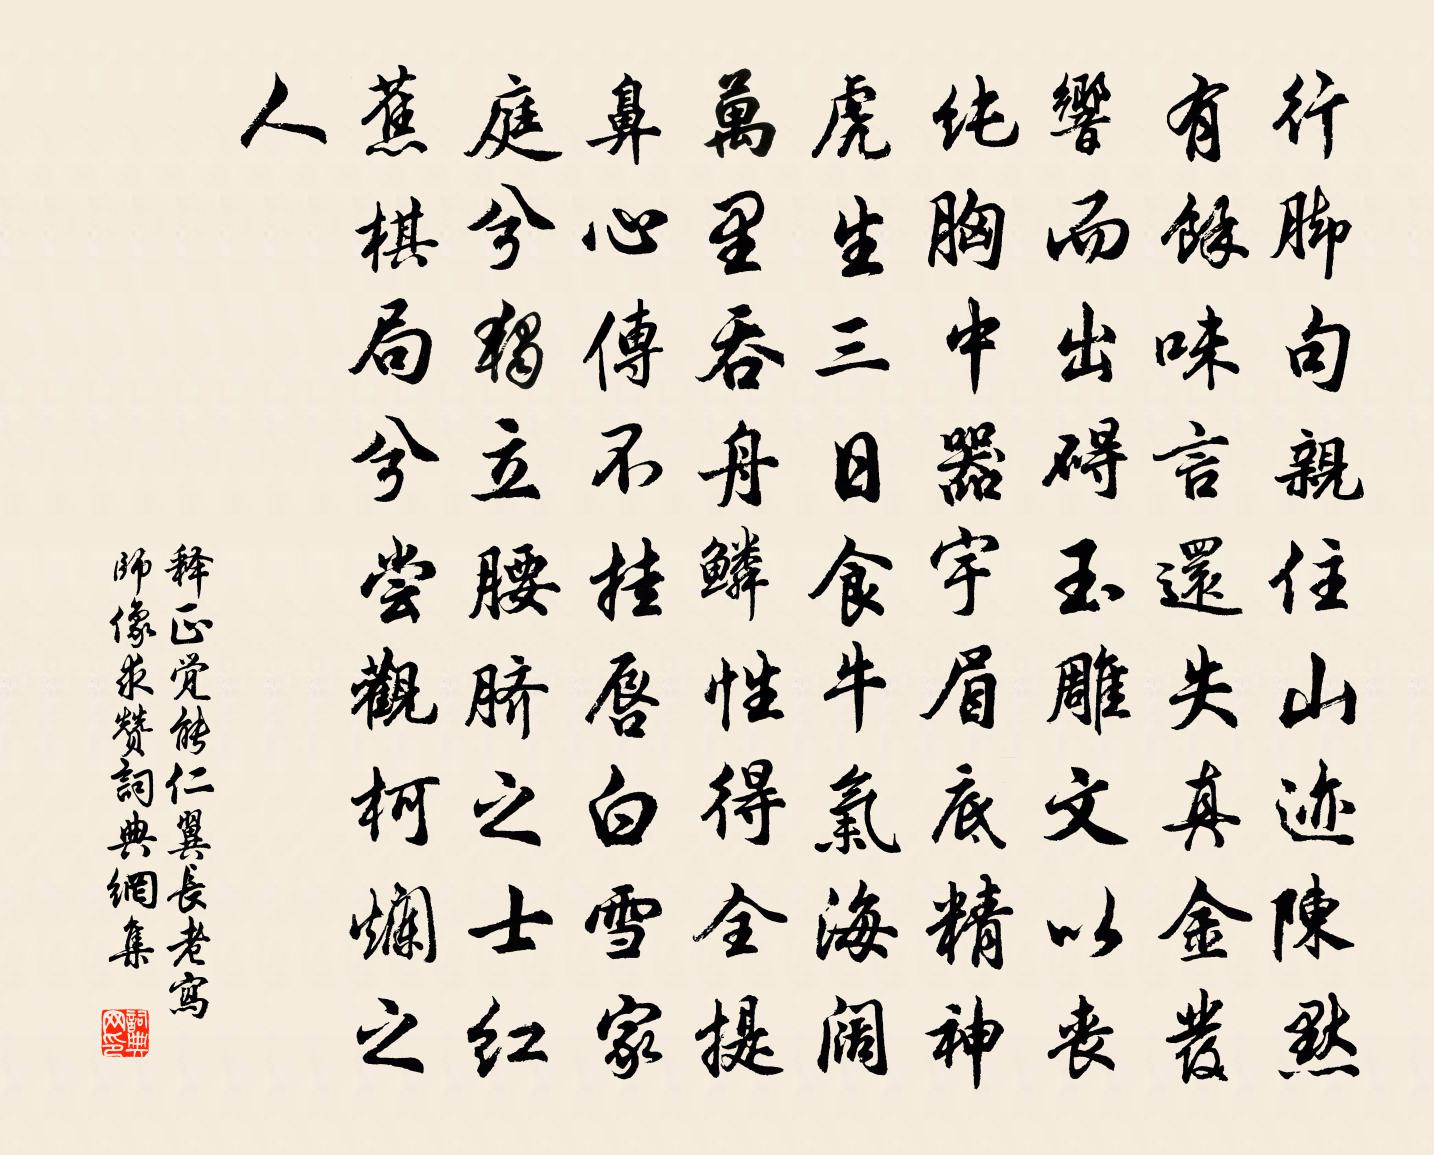 行脚句親住山迹陳默
有餘味言還失真金發
響而出碍玉雕文以喪
純胸中器宇眉底精神
虎生三日食牛氣海闊
萬里吞舟鱗性得全提
鼻心傳不挂唇白雪家
庭兮獨立腰脐之士紅
蕉棋局兮尝觀柯爛之
人
释正觉能仁翼長老寫
師像求赞詞典網集
詞典网印